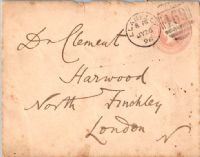 Dr Clement
Harwood
North Finchley
London N